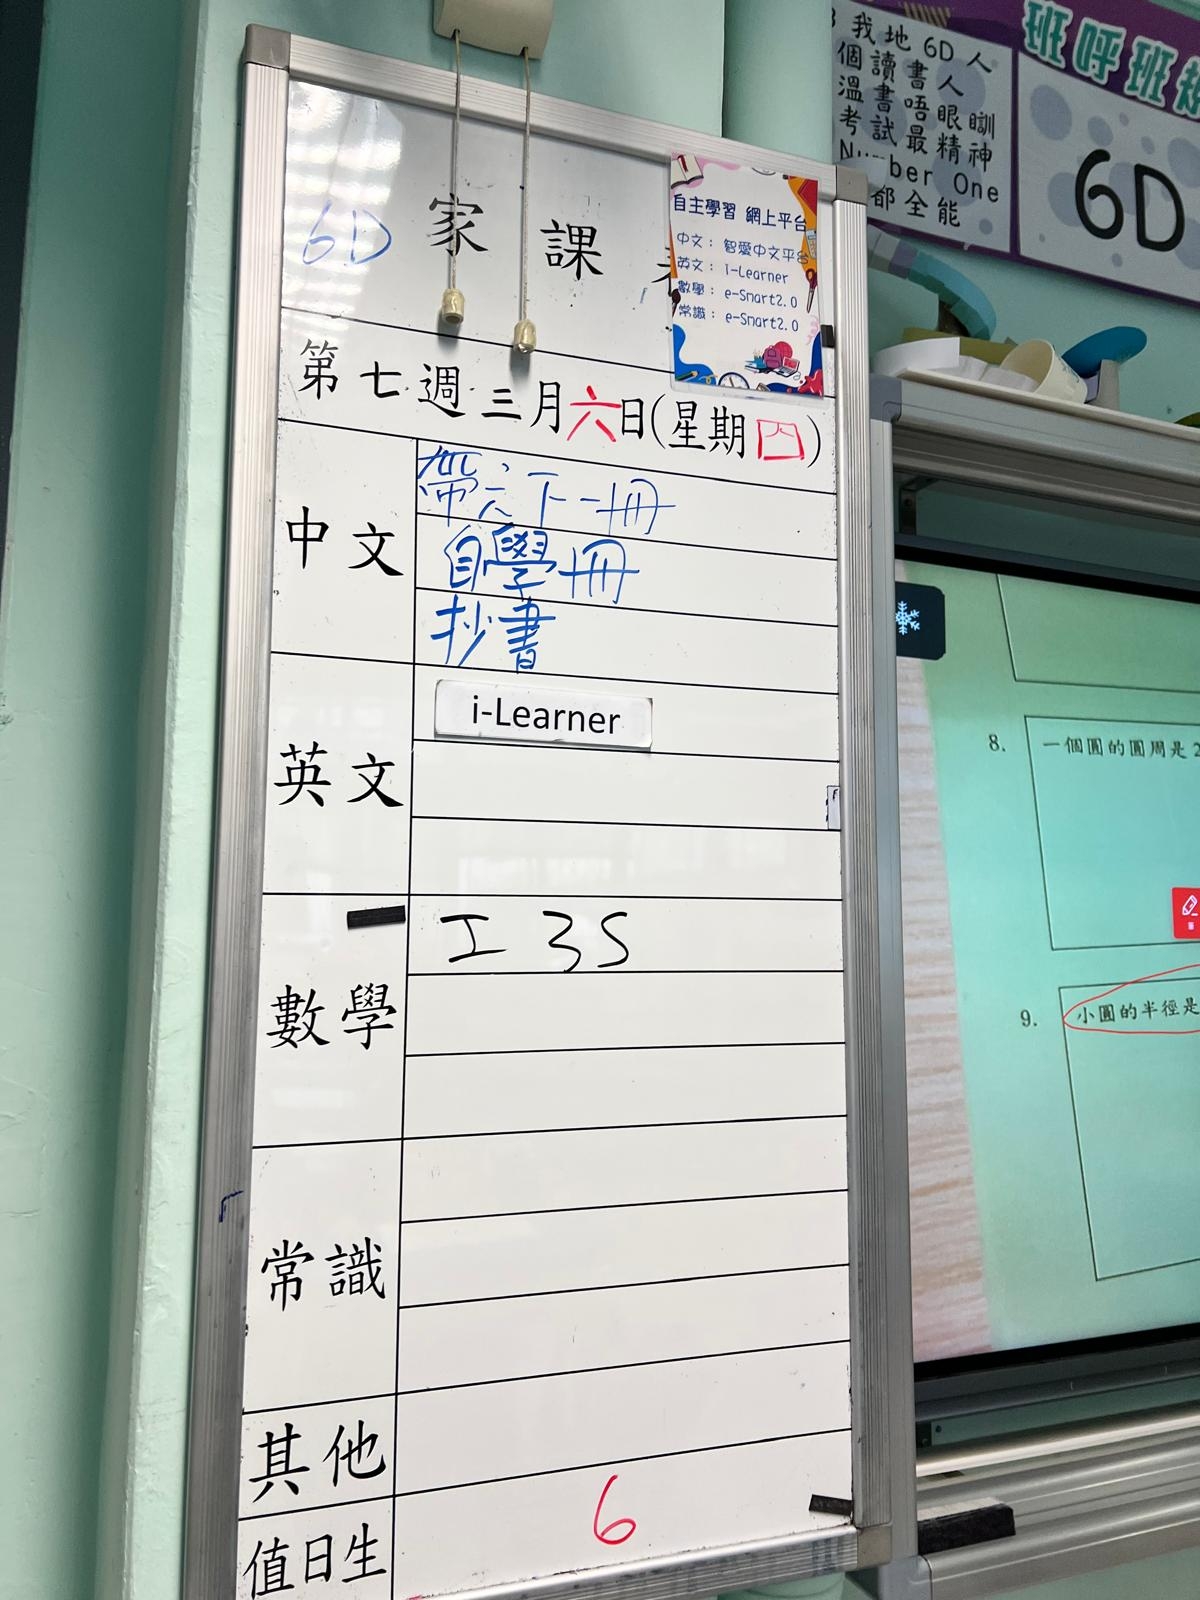 6D 家課
自主學習 網上平台
中文： 智愛中文平台
英文： i-Learner
數學： e-Smart2.0
常識： e-Smart2.0
第七週三月六日(星期四)
中文
帶六下一冊
自學冊
抄書
英文
i-Learner
數學
工 35
常識
其他
值日生
6
我地6D人
個讀書人
溫書唔眼瞓
考試最精神
Number One
都全能
班呼班
6D
8. 一個圓的圓周是2
9. 小圓的半徑是